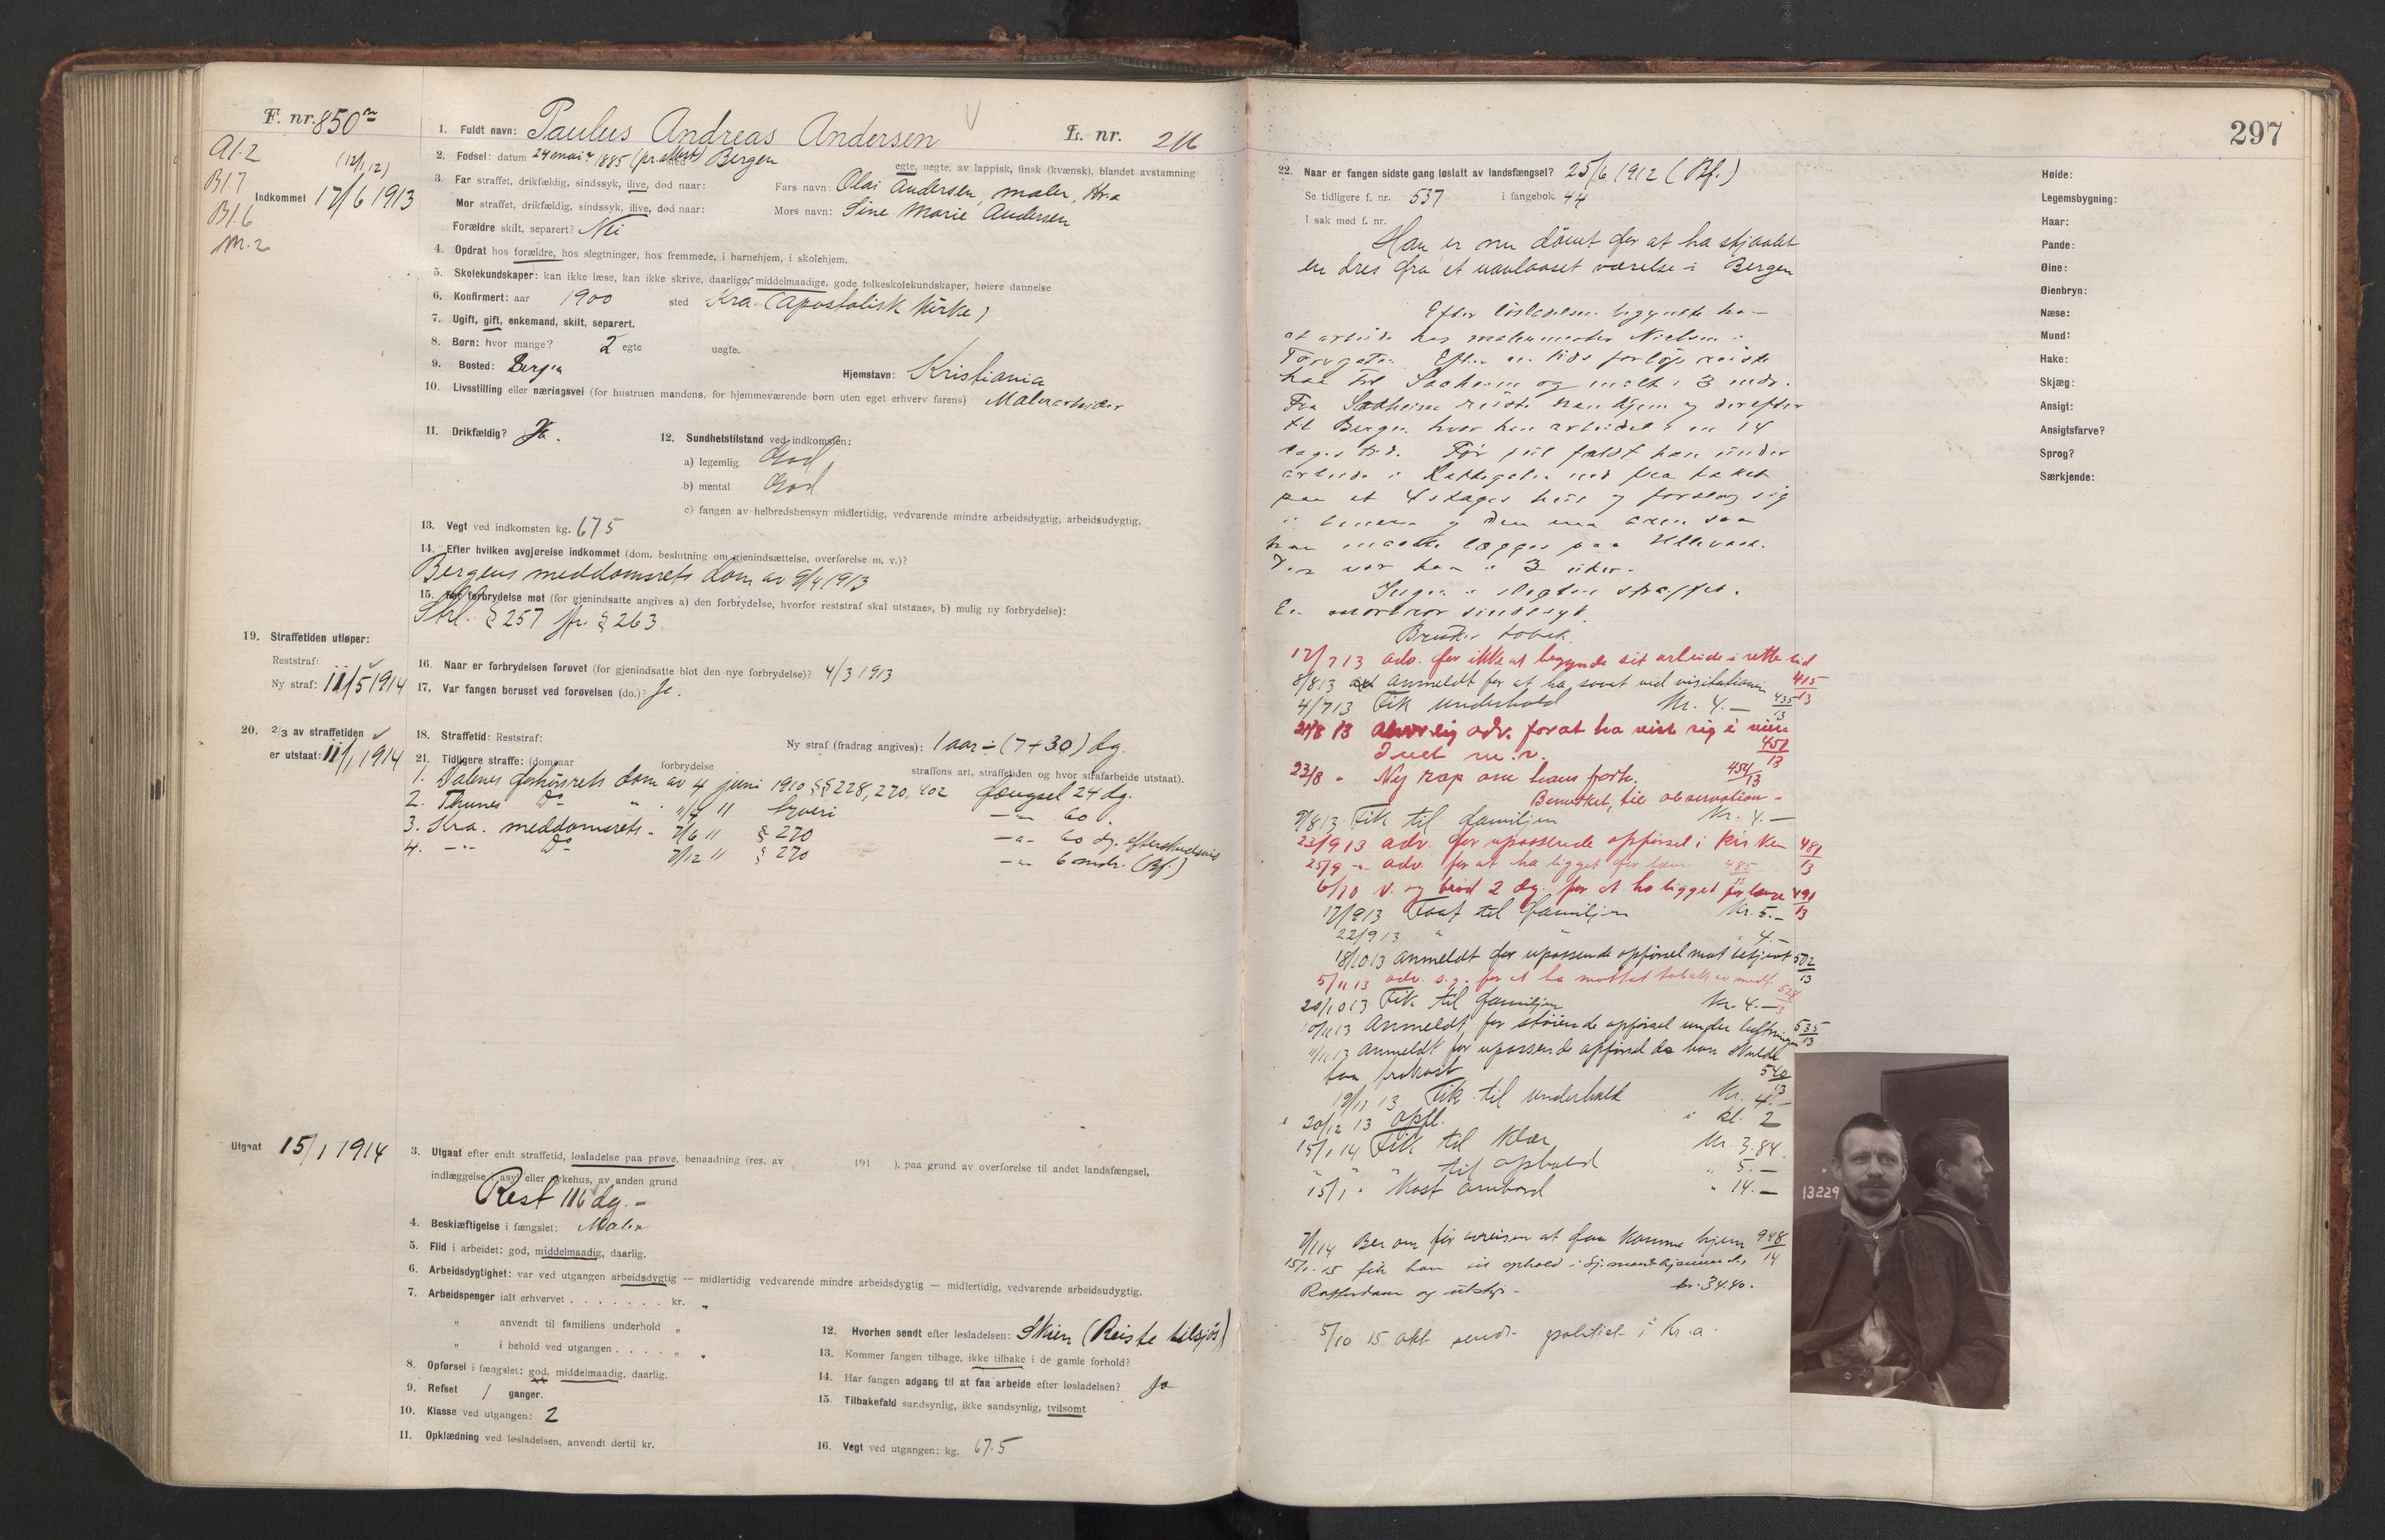 F. nr. 850
A1.2
B1.7
B1.6
M.2
(12/1,12)
Indkommet 17/6 1913
1. Fuldt navn: Paulus Andreas Andersen
L. nr. 216
2. Fødsel: datum 24 mai 1885 (pr. attest) sted Bergen
egte, uegte, av lappisk, finsk (kvænsk), blandet avstamning
3. Far straffet, drikfældig, sindssyk, ilive, død naar:
Fars navn: Olai Andersen, maler, Kra
Mor straffet, drikfældig, sindssyk, ilive, død naar:
Mors navn: Sine Marie Andersen
Forældre skilt, separert? Nei
4. Opdrat hos forældre, hos slegtninger, hos fremmede, i barnehjem, i skolehjem.
5. Skolekundskaper: kan ikke læse, kan ikke skrive, daarlige, middelmaadige, gode folkeskolekundskaper, høiere dannelse
6. Konfirmert: aar 1900 sted Kra. (apostolisk kirke)
7. Ugift, gift, enkemand, skilt, separert.
8. Børn: hvor mange? 2 egte uegte.
9. Bosted: Bergen
Hjemstavn: Kristiania
10. Livsstilling eller næringsvei (for hustruen mandens, for hjemmeværende børn uten eget erhverv farens) Malerarbeider
11. Drikfældig? Ja.
12. Sundhetstilstand ved indkomsten:
a) legemlig. God
b) mental God
c) fangen av helbredshensyn midlertidig, vedvarende mindre arbeidsdygtig, arbeidsudygtig.
13. Vegt ved indkomsten kg. 67.5
14. Efter hvilken avgjørelse indkommet (dom, beslutning om gjenindsættelse, overførelse m. v.)?
Bergens meddomsrets dom av 9/4 1913
15. For forbrydelse mot (for gjenindsatte angives a) den forbrydelse, hvorfor reststraf skal utstaaes, b) mulig ny forbrydelse):
Strl. § 257 jfr. § 263
16. Naar er forbrydelsen forøvet (for gjenindsatte blot den nye forbrydelse)? 4/3 1913
17. Var fangen beruset ved forøvelsen (do.)? Ja.
18. Straffetid: Reststraf:
Ny straf (fradrag angives): 1 aar ÷ (7+30) dg.
19. Straffetiden utløper:
Reststraf:
Ny straf: 11/5 1914
20. 2/3 av straffetiden
er utstaat: 11/1 1914
21. Tidligere straffe: (dom aar forbrydelse straffens art, straffetiden og hvor strafarbeide utstaat).
1. Dalenes forhørsrets dom av 4 juni 1910 §§ 228, 270, 402 fængsel 24 dg.
2. Thunes Do " " tyveri —"— 60 "
3. Kra. meddomsrets - 7/6 11 § 270 —"— 60 dg. efterskudsvis
4. —"— Do 7/12 11 § 270 —"— 6 mdr. (Bf.)
Utgaat 15/1 1914
3. Utgaat efter endt straffetid, løsladelse paa prøve, benaadning (res. av 191 ), paa grund av overførelse til andet landsfængsel,
indlæggelse i asyl eller sykehus, av anden grund
Rest 116 dg. -
4. Beskjæftigelse i fængslet: Maler
5. Flid i arbeidet: god, middelmaadig, daarlig.
6. Arbeidsdygtighet: var ved utgangen arbeidsdygtig — midlertidig vedvarende mindre arbeidsdygtig — midlertidig, vedvarende arbeidsudygtig.
7. Arbeidspenger ialt erhvervet . . . . . . . kr. „
" anvendt til familiens underhold „
" i behold ved utgangen . . . . „
8. Opførsel i fængslet: god, middelmaadig, daarlig.
9. Refset 1 ganger.
10. Klasse ved utgangen: 2
11. Opklædning ved løsladelsen, anvendt dertil kr.
12. Hvorhen sendt efter løsladelsen: Skien (Reiste tilsjøs)
13. Kommer fangen tilbage, ikke tilbake i de gamle forhold?
14. Har fangen adgang til at faa arbeide efter løsladelsen? Ja
15. Tilbakefald sandsynlig, ikke sandsynlig, tvilsomt
16. Vegt ved utgangen: kg. 67.5
297
22. Naar er fangen sidste gang løslatt av landsfængsel? 25/6 1912 (Bf.)
Se tidligere f. nr. 537 i fangebok 44
I sak med f. nr.
Han er nu dømt for at ha stjaalet
en dres fra et uavlaaset værelse i Bergen
Efter løsladelsen begyndte han
at arbeide hos malermester Nielsen i
Torvgaten. Efter en tids forløp reiste
han til Saaheim og malte i 3 mdr.
Fra Saaheim reiste han hjem og derefter
til Bergen hvor han arbeidet i en 14
dages tid. Før jul faldt han under
arbeide i ned fra taket
paa et 4 etages hus og forslog sig
i benene og den ene armen saa
han maatte lægges paa Ullevaal.
Der var han i 3 uker.
Ingen i slegten straffet.
En morbror sindssyk.
Bruker tobak.
17/7 13 adv. for ikke at begynde sit arbeide i rette tid 415/13
8/8 13 anmeldt for at ha sovet ved visitationen 435/13
4/7 13 Fik underhold Kr. 4.—
21/8 13 alvorlig adv. for at ha vist sig i 451/13
23/8 " Ny rap om hans forh. 454/13
Bemerket, til observation -
9/8 13 Fik til familjen Kr. 4.—
23/9 13 adv. for upassende opførsel i kirken 481/13
25/9 " adv. for at ha ligget for længe 485/13
6/10 V. og brød 2 dg. for at ha ligget for længe 491/13
17/9 13 Faat til familjen Kr. 5.—
22/9 13 " " 4.—
18/10 13 Anmeldt for upassende opførsel mot betjent 502/13
5/11 13 adv. s.g. for at ha mottat tobak av medf. 528/13
20/10 13 Fik til familjen Kr. 4.—
10/11 13 Anmeldt for støiende opførsel under luftningen 535/13
11/11 13 Anmeldt for upassende opførsel da han skulde
faa frokost 540/13
19/11 13 Fik til underhold Kr. 4.—
20/12 13 Opfl. i kl. 2
15/1 14 Fik til klær Kr. 3.84.
" " " til ophold " 5.—
15/1 " Kost ombord " 14.—
7/1 14 Ber om før avreisen at faa komme hjem 948/14
15/1 15 fik han ophold i
Rotterdam og utstyr - kr. 34.40.
5/10 15 akt sendt politiet i Kr.a.
Høide:
Legemsbygning:
Haar:
Pande:
Øine:
Øienbryn:
Næse:
Mund:
Hake:
Skjæg:
Ansigt:
Ansigtsfarve?
Sprog?
Særkjende:
13229